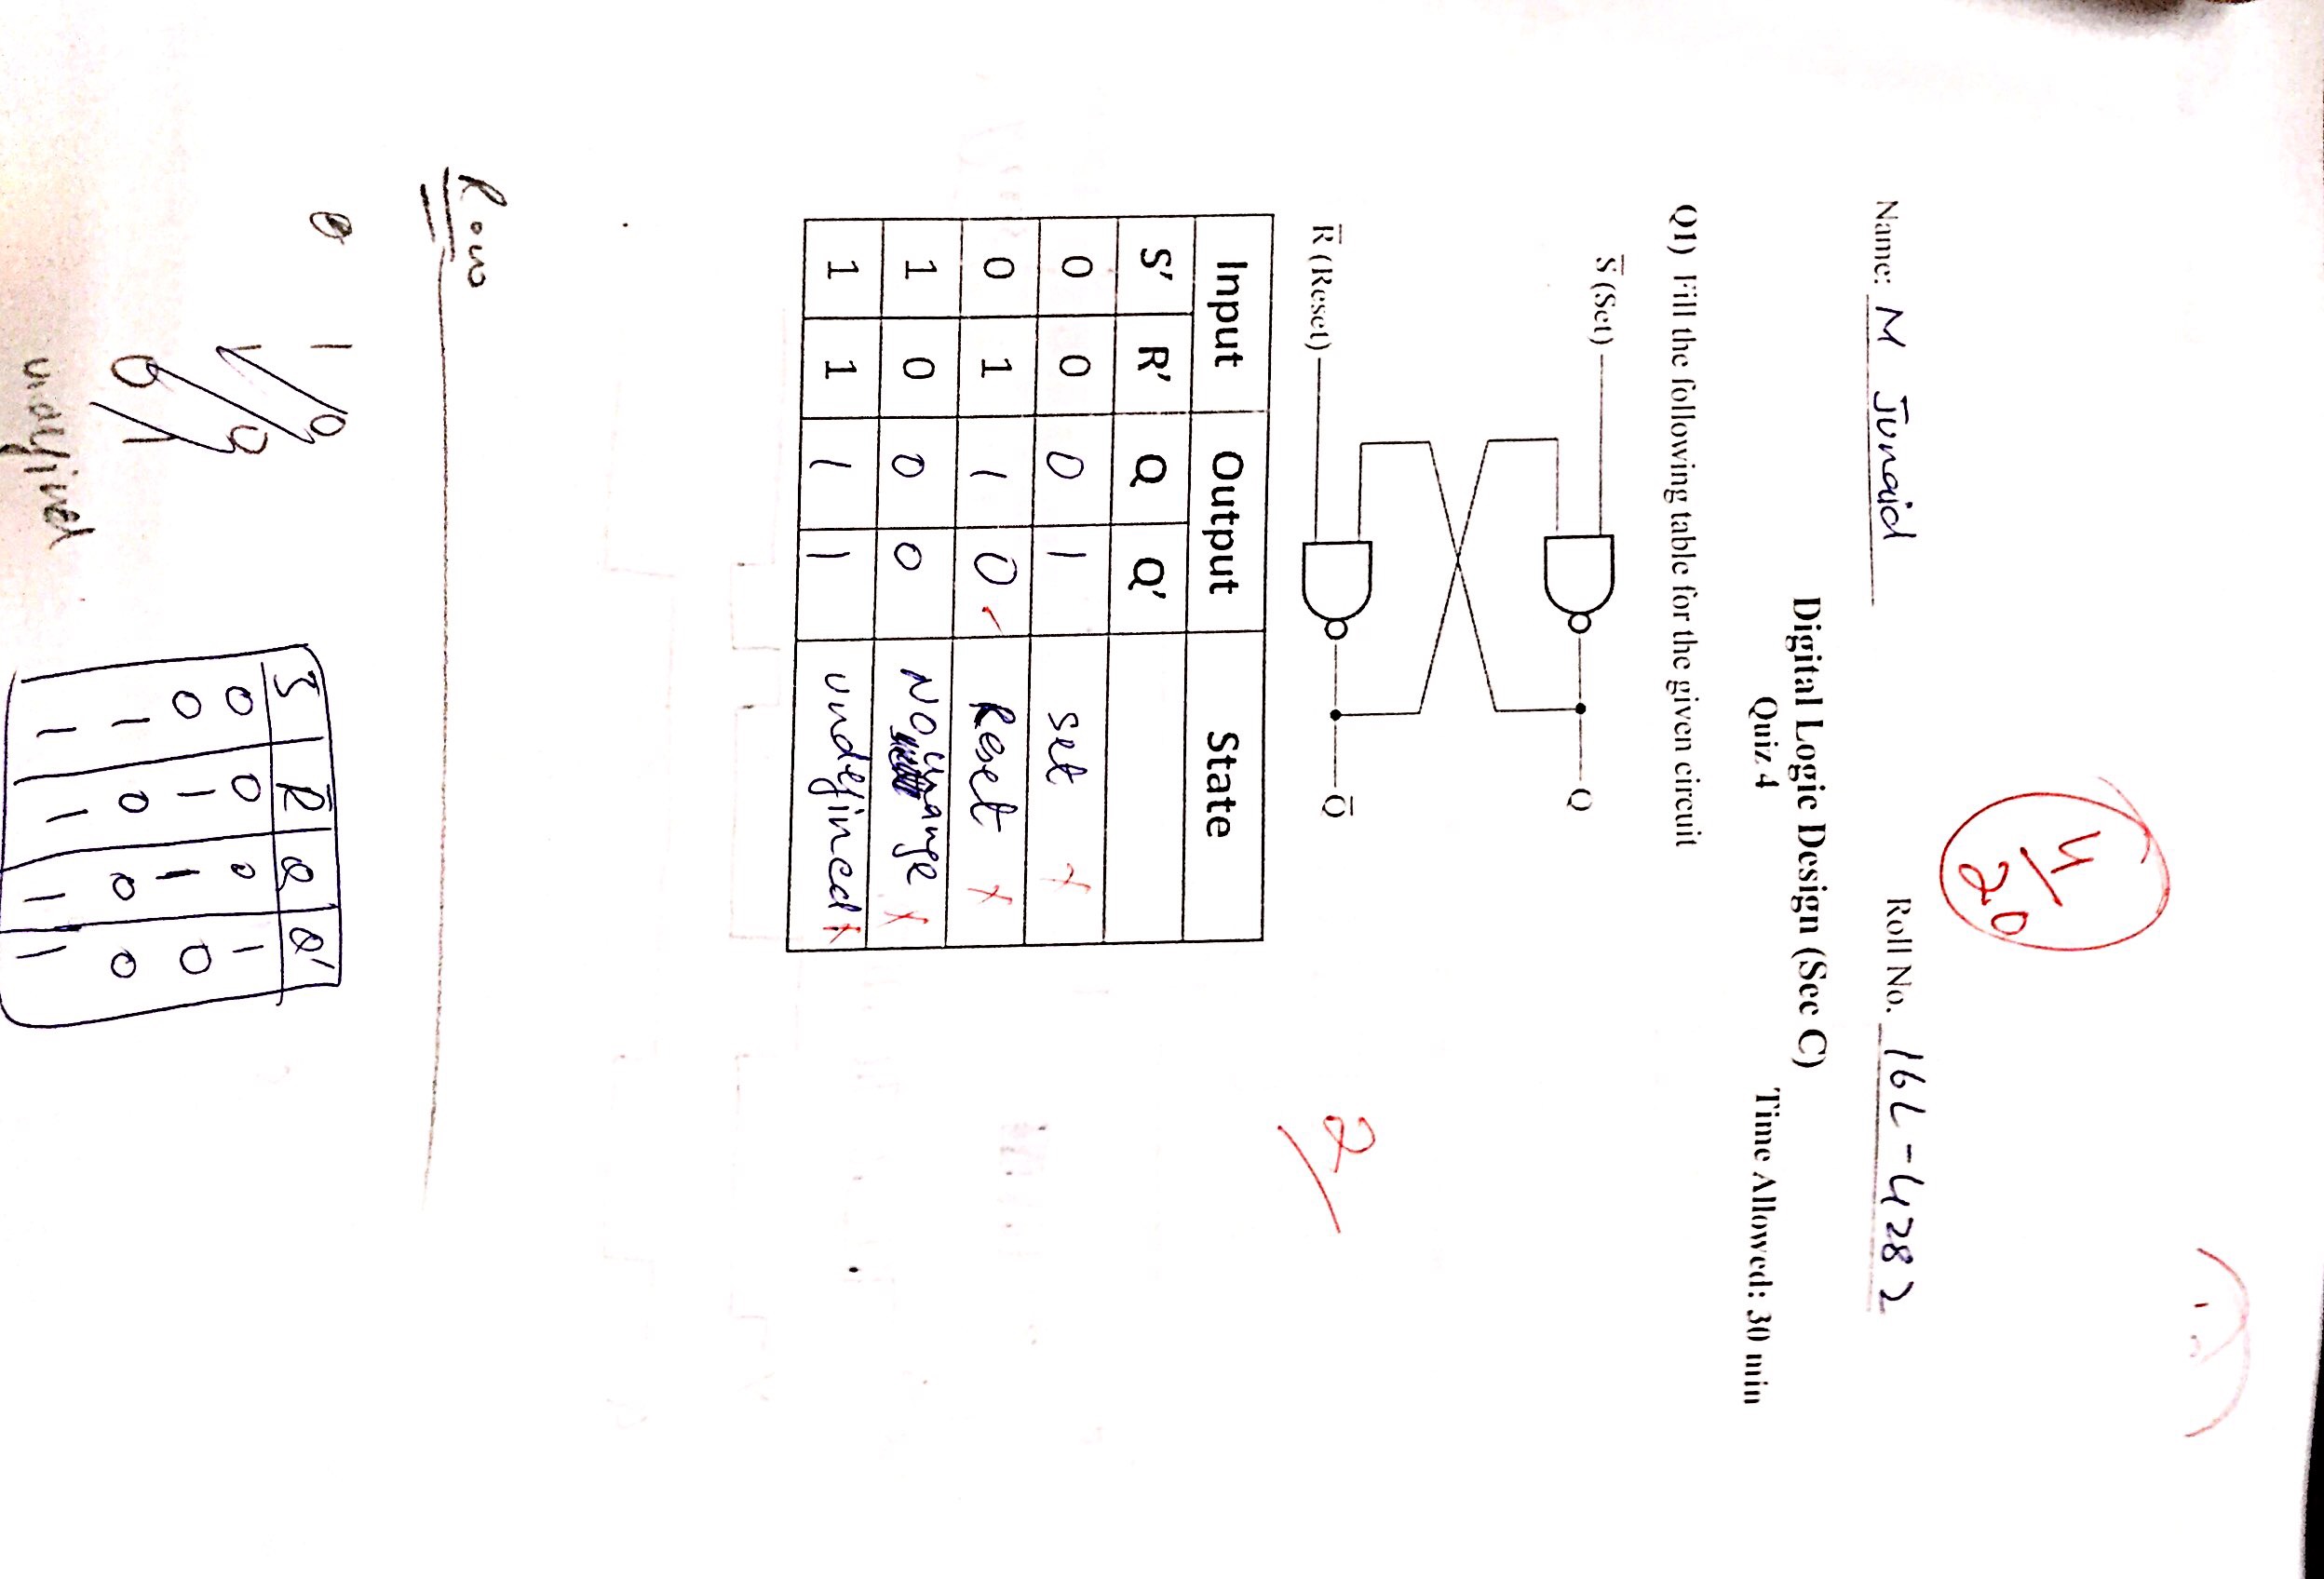 4/20
Name: M Junaid Roll No. 16L-4282
Digital Logic Design (Sec C)
Quiz 4 Time Allowed: 30 min
Q1) Fill the following table for the given circuit
S̅ (Set) Q
R̅ (Reset) Q̅
2
Input Output State
S' R' Q Q'
0 0 0 1 set x
0 1 1 0 Reset x
1 0 0 0 No change x
1 1 1 1 undefined x
Row
0 1 0
1 0
0 1
undefined
S̅ R̅ Q Q'
0 0 0 1
0 1 1 0
1 0 0 0
1 1 1 1